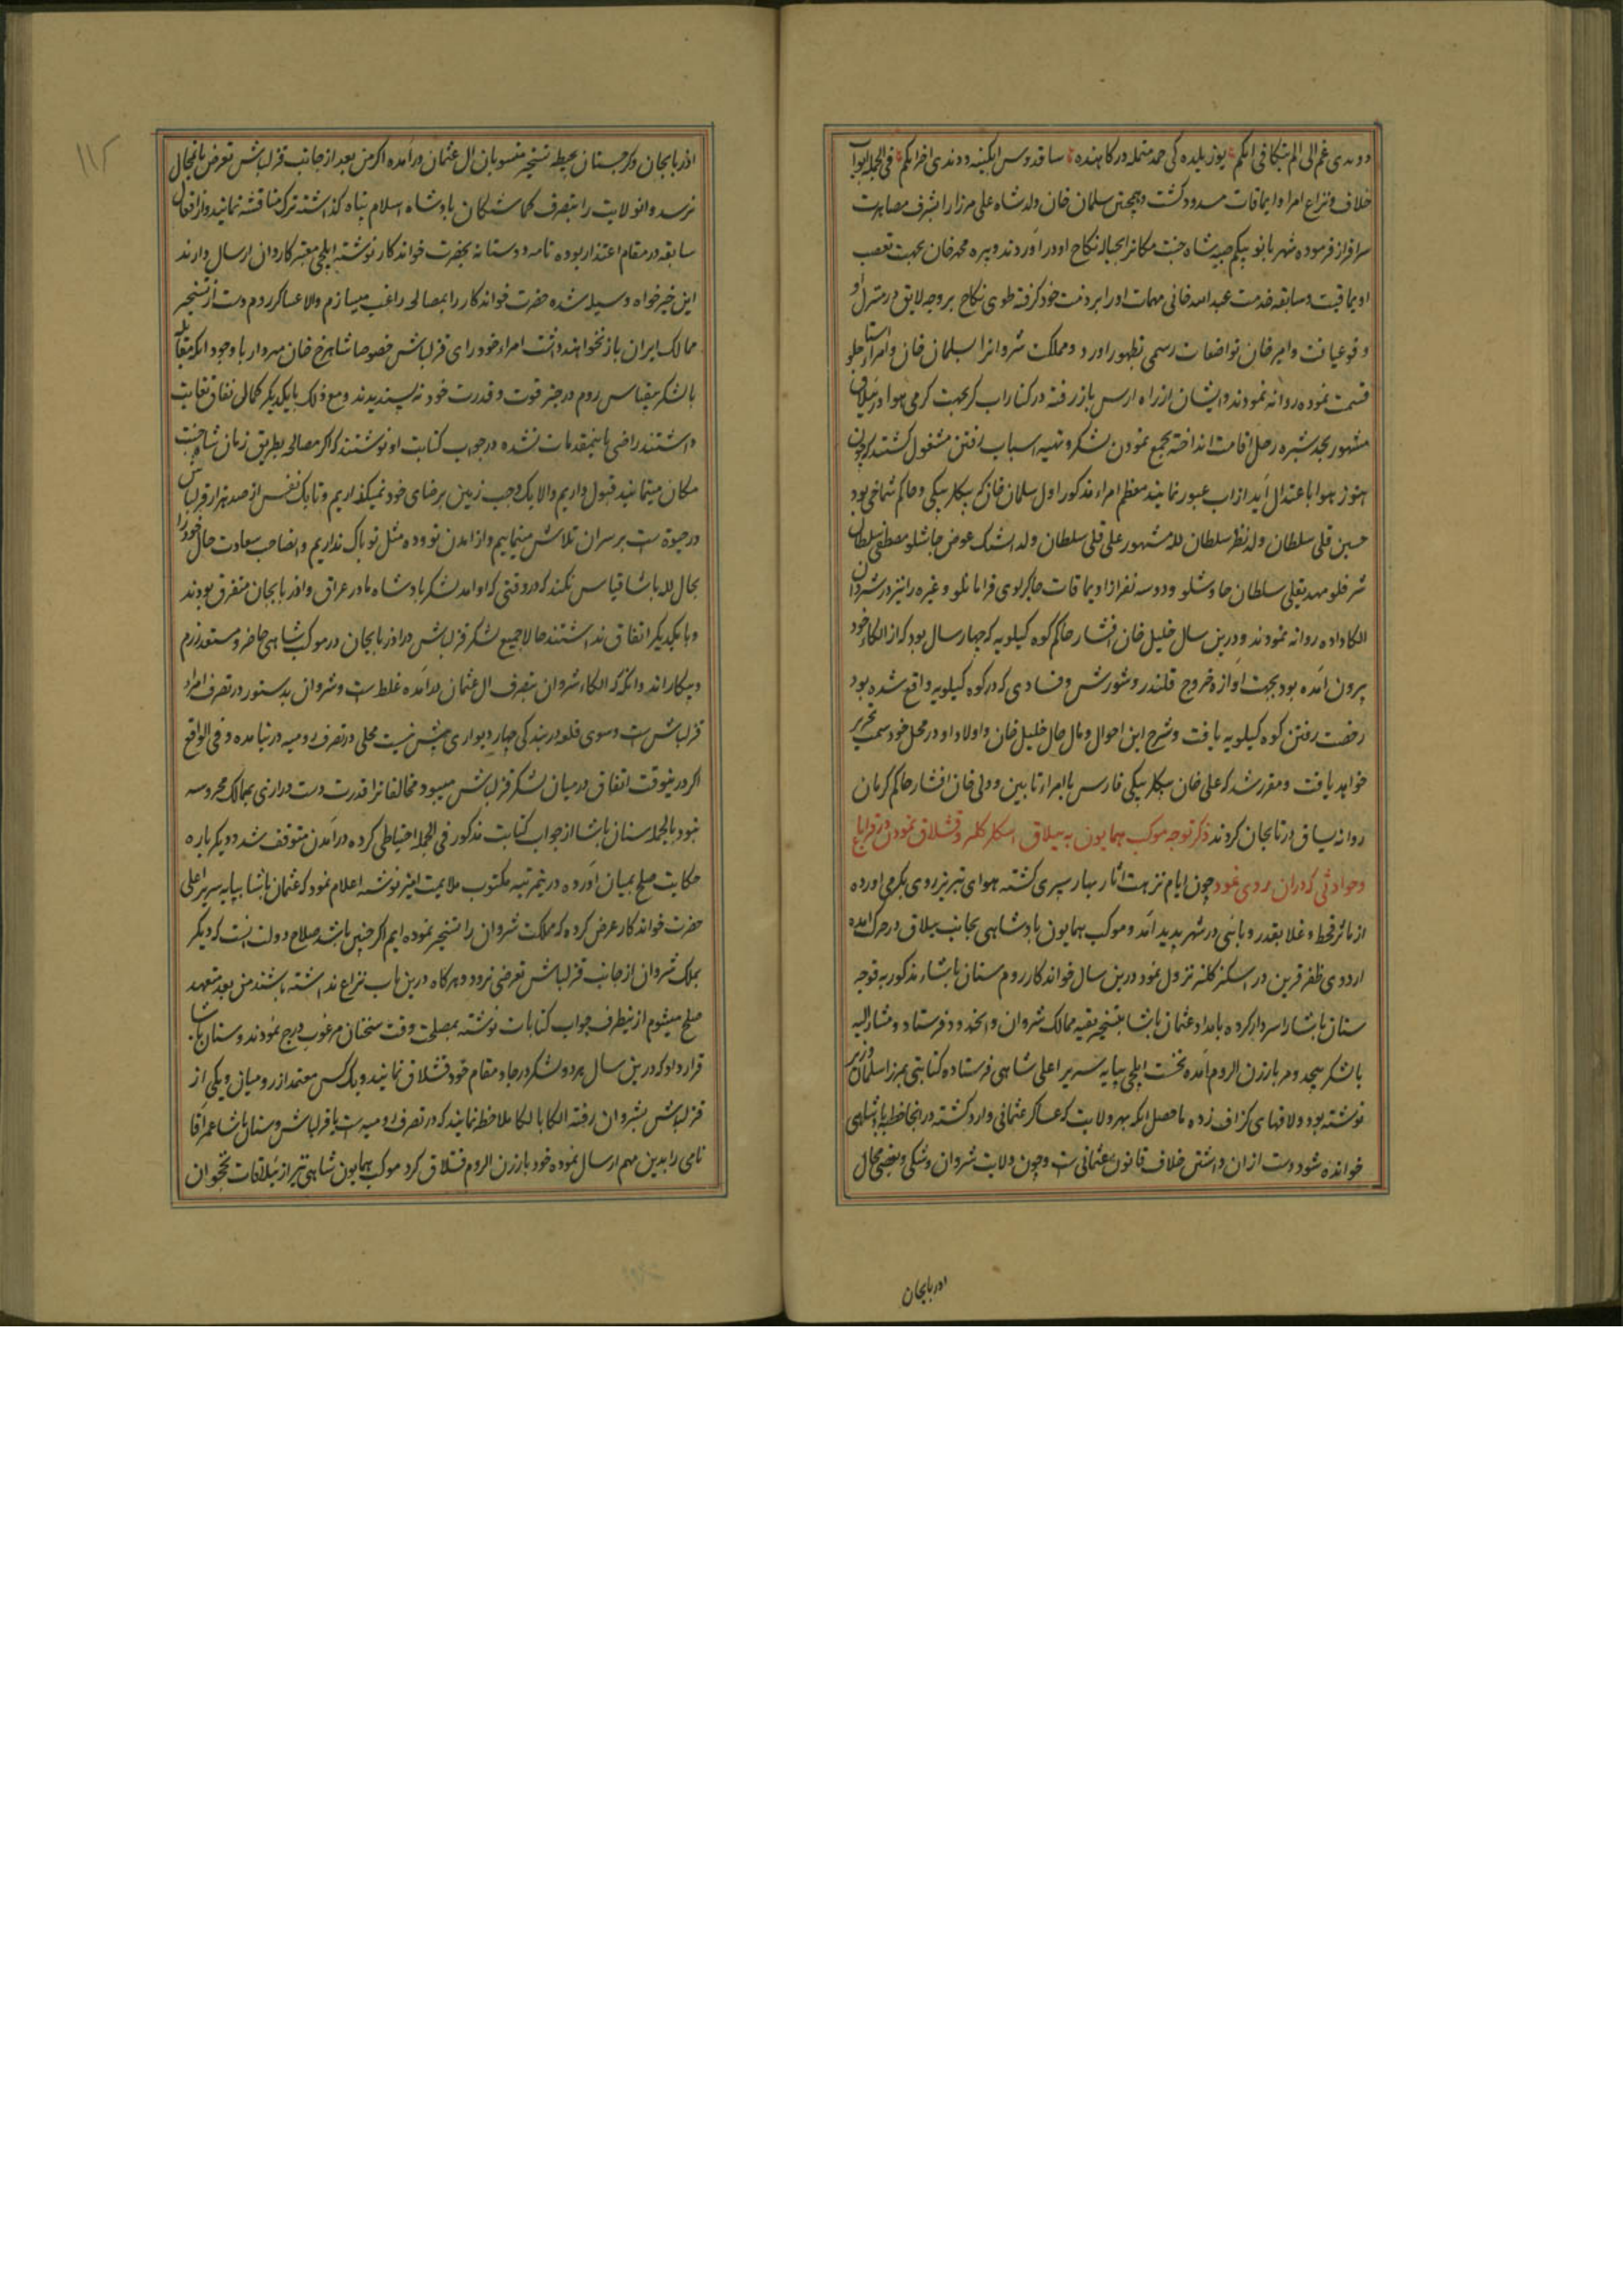 خلاف و نزاع امرا و ایماقات مسدود کشت و همچنین سلمان خان ولد شاه علی مرزا را بشرف مصاهرت
سرافراز فرموده شهربانو بیکم صبیه شاه جنت مکانرا بحباله نکاح او در آوردند و پیره محمد خان بجهت تعصب
اویماقیت و سابقه خدمت عبدالله خانی مهمات او را بر ذمت خود کرفته طوی نکاح بر وجه لایق در منزل او
وقوع یافت و امیر خان تواضعات رسمی بظهور آورد و مملکت شروانرا بسلمان خان و امراء
قسمت نموده روانه نمودند و ایشان از راه ارس بار رفته در کنار اب کر بجهت کرمی هوا در ییلاق
مشهور بجد شبره رحل اقامت انداخته بجمع نمودن لشکر و تهیه اسباب رفتن مشغول کشتند که چون
هنوز هوا با عتدال آید از اب عبور نمایند معظم امراء مذکور اول سلمان خان که بیکلربیکی و حاکم شماخی بود
حسین قلی سلطان ولد نظر سلطان لله مشهور علی قلی سلطان ولد
الکا داده روانه نمودند و درین سال خلیل خان افشار حاکم کوه کیلویه که چهار سال بود که از الکاء خود
بیرون آمده بود بجهت آوازه خروج قلندر و شورش و فسادی که در کوه کیلویه واقع شده بود
رخصت رفتن کوه کیلویه یافت و شرح این احوال و مال حال خلیل خان و اولاد او در محل خود سمت تحریر
خواهد یافت و مقرر شد که علی خان بیکلربیکی فارس با امراء تابین و ولی خان افشار حاکم کرمان
روانه یساق درنابجان کردند ذکر توجه موکب همایون به ییلاق اسکلر کلنر و قشلاق نمودن در قراباغ
و حوادثی که در ان روی نمود چون ایام نزهت اثار بهار سپری کشته هوای تبریز روی بکرمی آورده
از مآثر قحط و غلا بقدر وبائی در شهر پدید آمد و موکب همایون پادشاهی بجانب ییلاق در حرکت آمده
اردوی ظفر قرین در اسکنر کلنر نزول نمود درین سال خواندکار روم سنان پاشاء مذکور به قوجه
سنان پاشا را سردار کرده بامداد عثمان پاشا بتسخیر بقیه ممالک شروان و آنحدود فرستاد و مشارالیه
با لشکر بیحد و مر بارزن الروم آمده نخست ایلچی بپایه سریر اعلی شاهی فرستاده کتابتی بمرزا سلمان وزیر
نوشته بود و لافهای کزاف زده ما حصل آنکه بهر ولایت که عساکر عثمانی وارد کشته در انجا خطبه پادشاهی
خوانده شود دست ازان داشتن خلاف قانون عثمانی ست و چون ولایت شروان و شکی و بعضی محال
اذربایجان
۱۱۲
اذربایجان و کرجستان بحیطه تسخیر منسوبان ال عثمان درآمده اکر من بعد از جانب قزلباش تعرض بانمحال
نرسد و انولایت را بتصرف کماشتکان پادشاه اسلام پناه کذاشته ترک مناقشه نمایند و از افعال
سابقه در مقام اعتذار بوده نامه دوستانه بحضرت خواندکار نوشته ایلچی معتبر کاردان ارسال دارند
این خیرخواه وسیله شده حضرت خواندکار را بمصالحه راغب میسازم والا عساکر روم دست از تسخیر
ممالک ایران باز نخواهند داشت امراء خودرای قزلباش خصوصا شاهرخ خان مهردار با وجود آنکه مقابله
با لشکر بیقیاس روم در حیز قوت و قدرت خود نه پسندیدند و مع ذلک با یکدیکر کمال نفاق بغایت
داشتند راضی باینمقدمات نشده در جواب کتابت او نوشتند که اکر مصالحه بطریق زمان شاه جنت
مکان مینمایند قبول داریم والا یک وجب زمین برضای خود نمیکذاریم و تا یک نفس از صد هزار قزلباش
در حیوة ست بر سر ان تلاش مینماییم و از امدن تو و ده مثل تو باک نداریم و انصاحب سعادت حال خود را
بحال لله پاشا قیاس نکند که در وقتی که او آمد لشکر پادشاه ما در عراق و اذربایجان متفرق بودند
و با یکدیکر اتفاق نداشتند حالا جمیع لشکر قزلباش در اذربایجان در موکب شاهی حاضر و مستعد رزم
و پیکاراند و آنکه الکاء شروان بتصرف ال عثمان درآمده غلط ست و شروان بدستور در تصرف امراء
قزلباش ست و سوی قلعه دربند کی چهار دیواری بیش نیست محلی در تصرف رومیه در نیامده و فی الواقع
اکر در ینوقت اتفاق درمیان لشکر قزلباش میبود مخالفانرا قدرت دست درازی بممالک محروسه
نبود بالجمله سنان پاشا از جواب کتابت مذکور فی الجمله احتیاطی کرده در آمدن متوقف شد و دیکر باره
حکایت صلح بمیان آورده درینمرتبه مکتوب ملایمت امیز نوشته اعلام نمود که عثمان پاشا بپایه سریر اعلی
حضرت خواندکار عرض کرده که مملکت شروان را تسخیر نموده ایم اکر چنین باشد صلاح دولت آنست که دیکر
بملک شروان از جانب قزلباش تعرضی نرود و هرکاه درین باب نزاع نداشته باشند من بعد متعهد
صلح میشوم از ینطرف جواب کتابات نوشته بمصلحت وقت سخنان مرغوب درج نمودند و سنان پاشا
قرار داد که درین سال هر دو لشکر در جا و مقام خود قشلاق نمایند و یک کس معتمد از رومیان و یکی از
قزلباش بشروان رفته الکا بالکا ملاحظه نمایند که در تصرف رومیه ست یا قزلباش و سنان پاشا عمر آقا
نامی را بدین مهم ارسال نموده خود بارزن الروم قشلاق کرد موکب همایون شاهی نیز از ییلاقات نخجوان